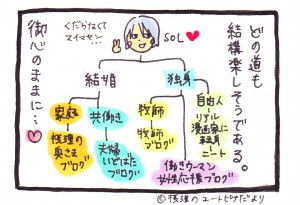 どの道も
結構楽しそうである。
御心のままに…
くだらなくて
スイマセン…
SOL
結婚
独身
家庭
共働き
牧師
自由人
リアル
漫画家に
転身
ニート
牧師
ブログ
夫婦
いどばた
ブログ
奥さま
ブログ
働きウーマン
女性応援ブログ